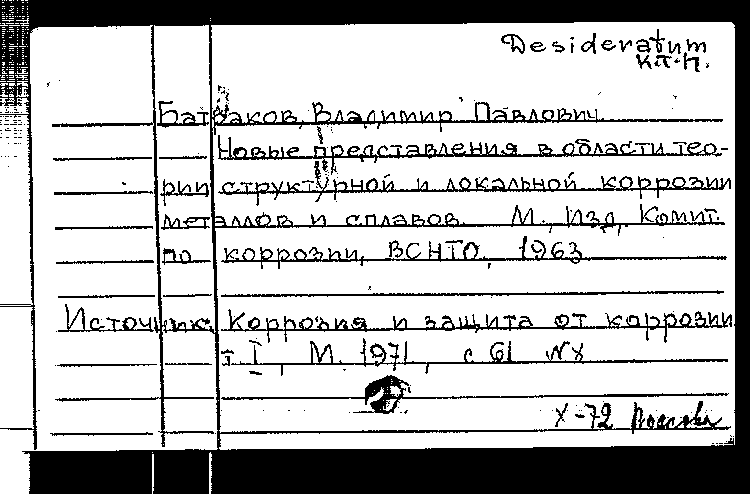 Desideratum
К.П.П.
Батраков, Владимир Павлович.
Новые представления в области тео-
рии структурной и локальной коррозии
металлов и сплавов. М., Изд. Комит.
по коррозии, ВСНТО, 1963
Источник: Коррозия и защита от коррозии
т. I, М. 1971, с 61 №8
X-72